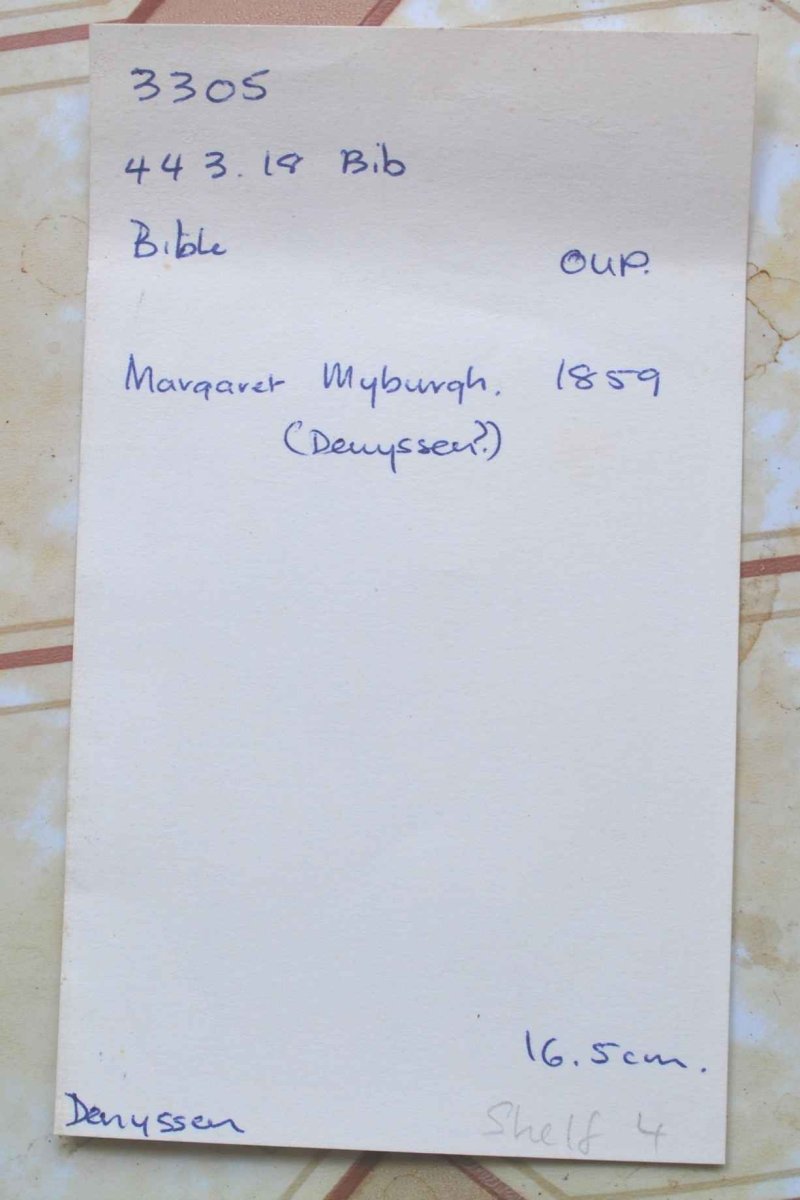 3305
443.18 Bib
Bible
OUP.
Margaret Myburgh. 1859
(Denyssen?)
16.5cm.
Denyssen
Shelf 4